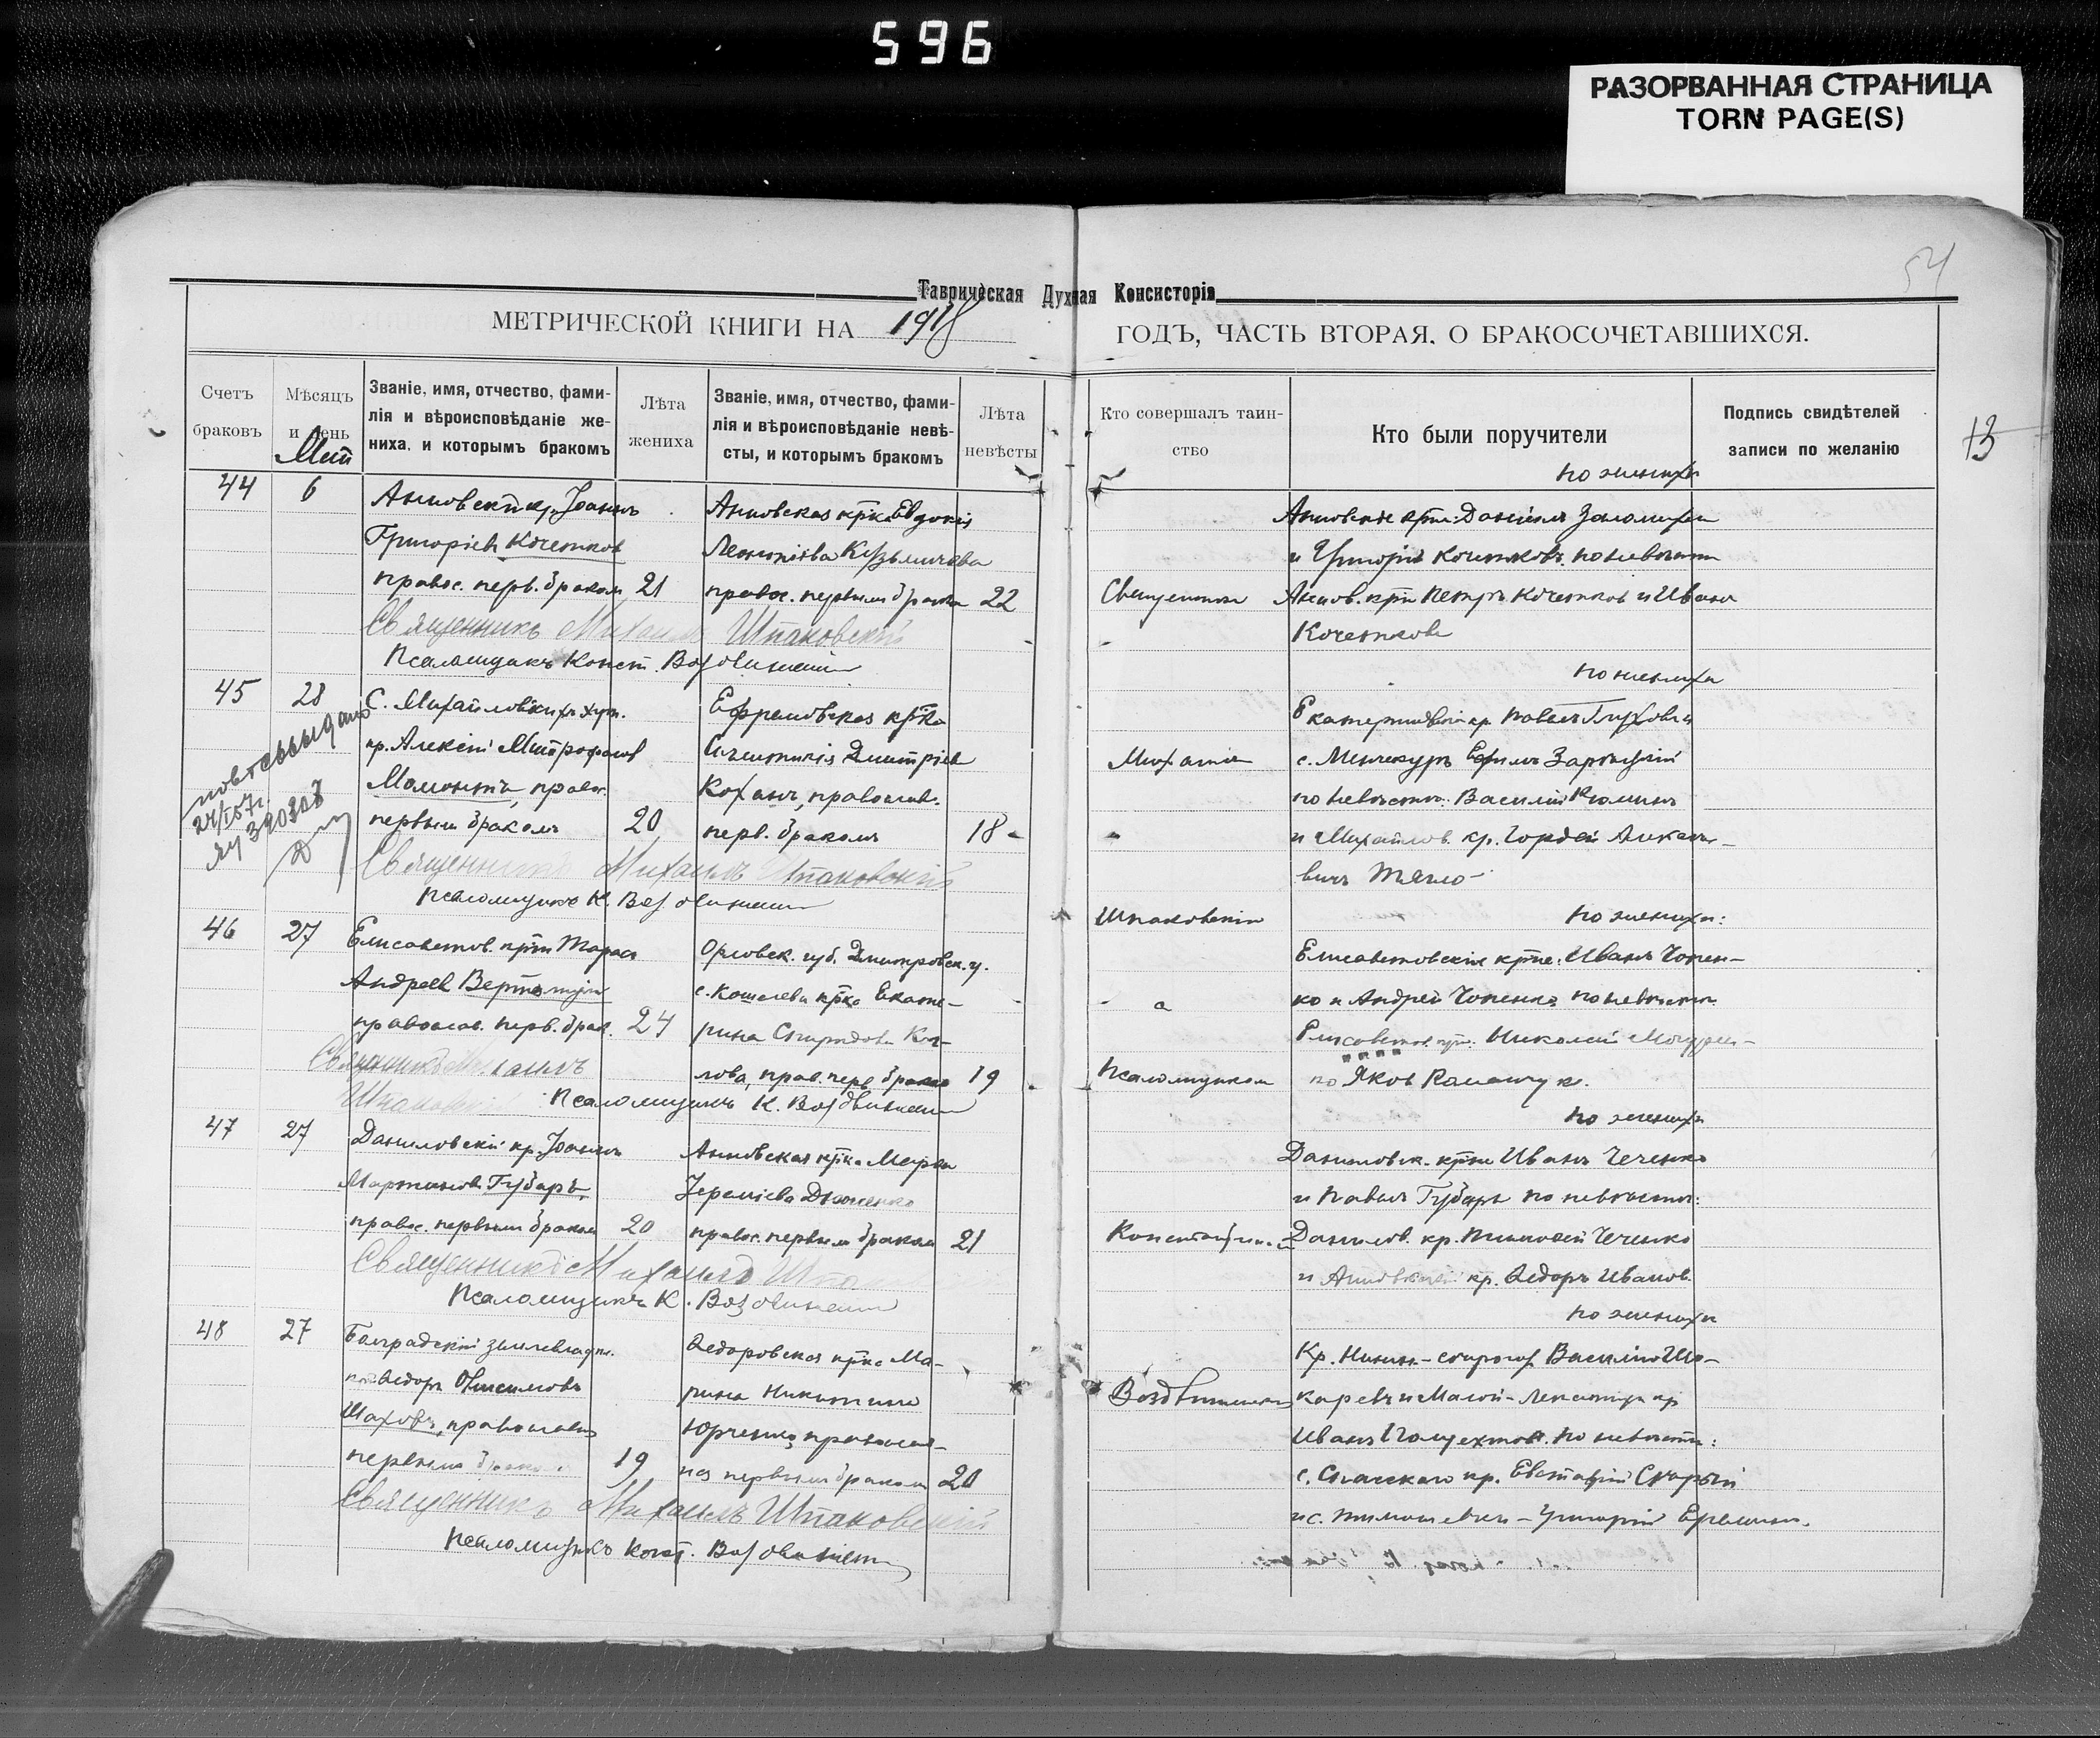 596
РАЗОРВАННАЯ СТРАНИЦА
TORN PAGE(S)
54
Таврическая Духная Консисторія
МЕТРИЧЕСКОЙ КНИГИ НА 1918 ГОДЪ, ЧАСТЬ ВТОРАЯ, О БРАКОСОЧЕТАВШИХСЯ.
13
Счетъ браковъ
Мѣсяцъ и день
Званіе, имя, отчество, фами-
лія и вѣроисповѣданіе же-
ниха, и которымъ бракомъ
Лѣта жениха
Званіе, имя, отчество, фами-
лія и вѣроисповѣданіе невѣ-
сты, и которымъ бракомъ
Лѣта невѣсты
Кто совершалъ таин-
ство
Кто были поручители
Подпись свидѣтелей
записи по желанію
Май
44
6
Анновскій кр. Іоаннъ
Григоріевъ Кочетков
правос. перв. браком 21
Анновская кр-ка Евдокія
Леонтіева Кузьмичева
правос. первым браком 22
Священник
по жениху
Анновскіе кр-не: Даніилъ
и Григорій Кочетковъ, по невѣстѣ
Аннов. кр-не Петръ Кочетков и Иванъ
Кочетков
Священникъ Михаилъ Шпаковскій
Псаломщикъ Конст. Воздвиженскій
45
28
24/I 57 г.
С. Михайловскихъ хут.
кр. Алексій Митрофанов
Мамонтъ, правос.
первым браком 20
Ефремовская кр-ка
Дмитріев
Коханъ, православ.
перв. браком 18
Михаил
по жениху
кр. Павелъ
с. Менчекуръ Ефимъ
по невѣстѣ: Василій
и Михайлов. кр. Гордей Алексѣ-
вичъ Тягло
Священникъ Михаилъ Шпаковскій
Псаломщикъ К. Воздвиженскій
46
27
Елисаветов. кр-нъ Тарас
Андреев
православ. перв. брак. 24
Орловск. губ. Дмитровск. у.
с. Кошелева кр-ка Екате-
рина Спиридонова Коз-
лова, прав. перв. браком 19
Шпаковскій
а
Псаломщиком
по жениху:
Елисаветовскіе кр-не: Иванъ Чопен-
ко и Андрей Чопенко по невѣстѣ
Елисаветов. кр-не: Николай
Яков
Священникъ Михаилъ
Шпаковскій Псаломщикъ К. Воздвиженскій
47
27
Даниловскій кр. Іоаннъ
Мартинов Губарь,
правос. первым браком 20
Анновская кр-ка Марѳа
Іереміева
правос. первым браком 21
Константин
по жениху
Даниловск. кр-не Иванъ Чеченко
и Павелъ Губарь по невѣстѣ:
Данилов. кр. Тимофей Чеченко
и Анновскій кр. Ѳедоръ Иванов.
Священникъ Михаилъ Шпа
Псаломщикъ К. Воздвиженскій
48
27
Болградскій землевладѣл.
Ѳедоръ Онисимовъ
Шаховъ, православн.
первым браком 19
Ѳедоровская кр-ка Ма-
рина Никитина
Юрченко, православ-
ная первым браком 20
Воздвиженскій
по жениху
Кр. Нижн.-Сирогоз. Василій Шо-
каревъ и Малой-Лепатихи кр.
Иванъ по невѣстѣ:
с. Спасскаго кр. Евстафій Скорый
и с. Тимошевки - Григорій
Священникъ Михаилъ Шпаковскій
Псаломщикъ Конст. Воздвиженскій